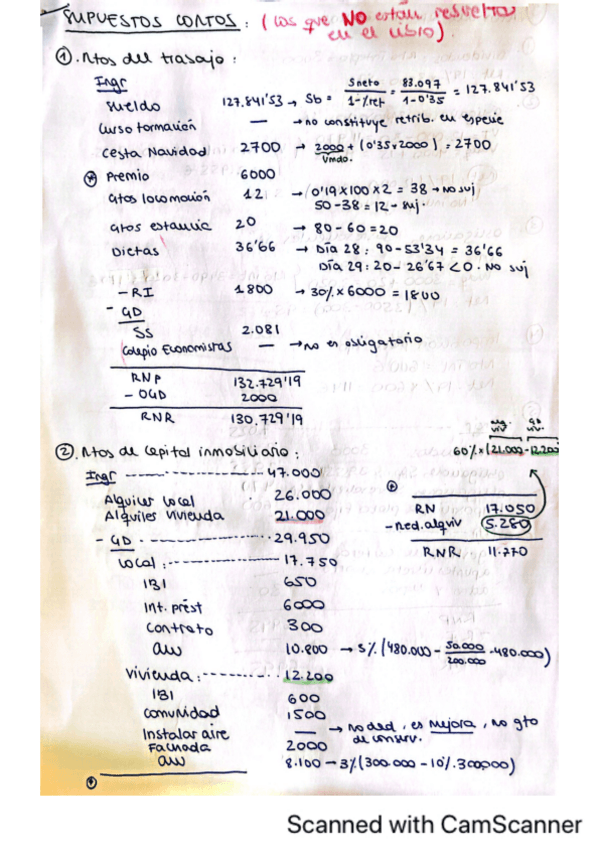 SUPUESTOS CORTOS : (los que NO están resueltos
en el libro).
① . Rtos del trabajo :
Ingr
Sueldo 127.841'53 → Sb = Sneto / 1-%ret = 83.097 / 1-0'35 = 127.841'53
Curso formación — → no constituye retrib. en especie
Cesta Navidad 2700 → 2000 + (0'35 x 2000) = 2700
Vmdo.
* Premio 6000
Gtos locomoción 12 → 0'19 x 100 x 2 = 38 → No suj
50 - 38 = 12 → suj.
Gtos estancia 20 → 80 - 60 = 20
Dietas 36'66 → Día 28 : 90 - 53'34 = 36'66
Día 29 : 20 - 26'67 < 0 . No suj
- RI 1.800 → 30% x 6000 = 1800
- GD
SS 2.081
Colegio Economistas — → no es obligatorio
RNP 132.729'19
- OGD 2000
RNR 130.729'19
② . Rtos de capital inmobiliario :
60% x (21.000 - 12.200
Ingr 47.000
Alquiler local 26.000
Alquiler Vivienda 21.000
RN 17.050
- red. alq viv 5.280
RNR 11.770
- GD 29.950
Local : 17.750
IBI 650
Int. prést 6000
Contrato 300
AW 10.800 → 3% (480.000 - 50.000 / 200.000 · 480.000)
Vivienda : 12.200
IBI 600
Comunidad 1500
Instalar aire — → No ded , es Mejora , no gto
de conserv.
Fachada 2000
AW 8.100 → 3% (300.000 - 10% . 300.000)
Scanned with CamScanner